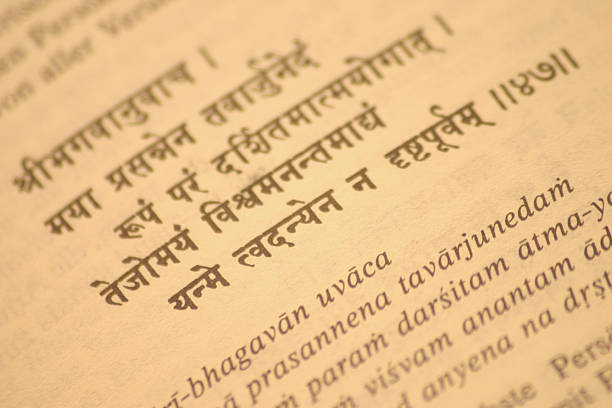 aller
श्रीभगवानुवाच ।
मया प्रसन्नेन तवार्जुनेदं
रूपं परं दर्शितमात्मयोगात् ।
तेजोमयं विश्वमनन्तमाद्यं
यन्मे त्वदन्येन न दृष्टपूर्वम् ॥४७॥
rī-bhagavān uvāca
prasannena tavārjunedaṁ
ṁ paraṁ darśitam ātma-yo
viśvam anantam ād
d anyena na dṛṣṭ